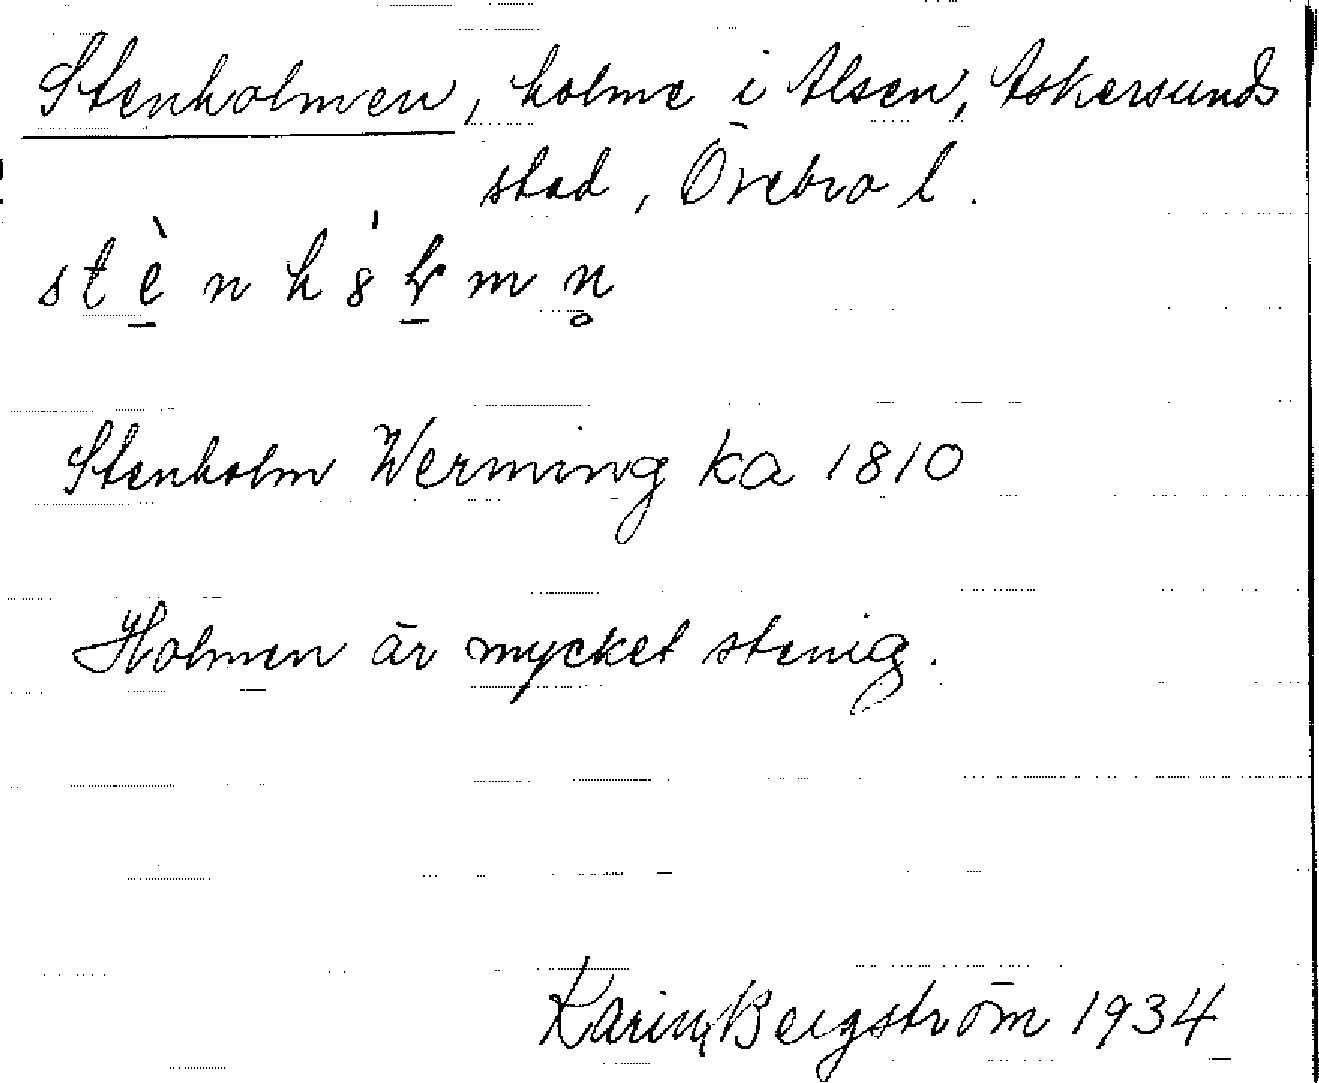 Stenholmen, holme i Alsen, Askersunds
stad, Örebro l.
Stenholm Werming ka 1810
Holmen är mycket stenig.
Karin Bergström 1934